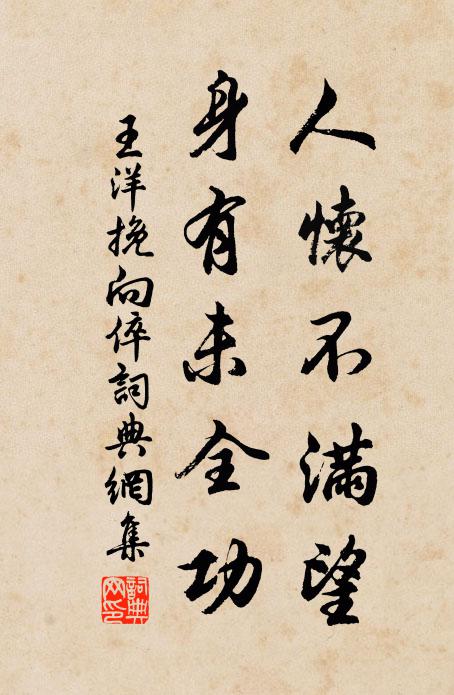 人懷不滿望
身有未全功
王洋挽向倅詞典網集
詞典
网印